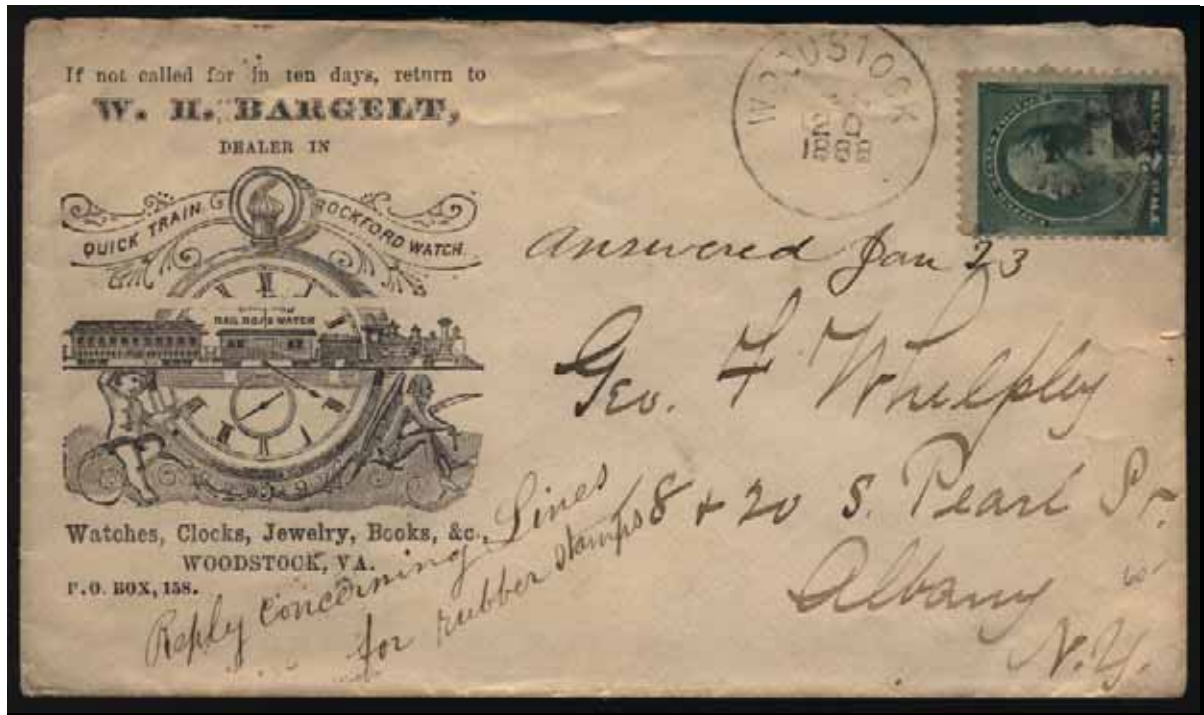 If not called for in ten days, return to
W. H. BARGELT,
DEALER IN
QUICK TRAIN. ROCKFORD WATCH.
RAIL ROAD WATCH
Watches, Clocks, Jewelry, Books, &c.,
WOODSTOCK, VA.
P.O. BOX, 158.
WOODSTOCK
answered Jan 23
Geo. F Whelpley
8 & 20 S. Pearl St.
Albany
N.Y.
Reply concerning Lines
for rubber stamps